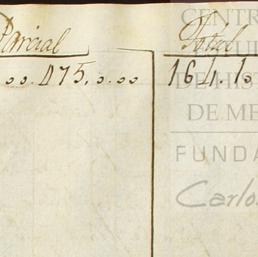 Parcial Total
..00.475,0.00 164.10
CENTR
DE HIST
DE ME
FUNDA
Carlo